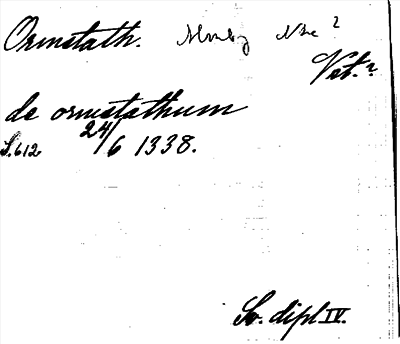 Ormstath. Munkeby Nke ?
Vet. ?
de ormstathum
S. 612 24/6 1338.
Sv. dipl IV.